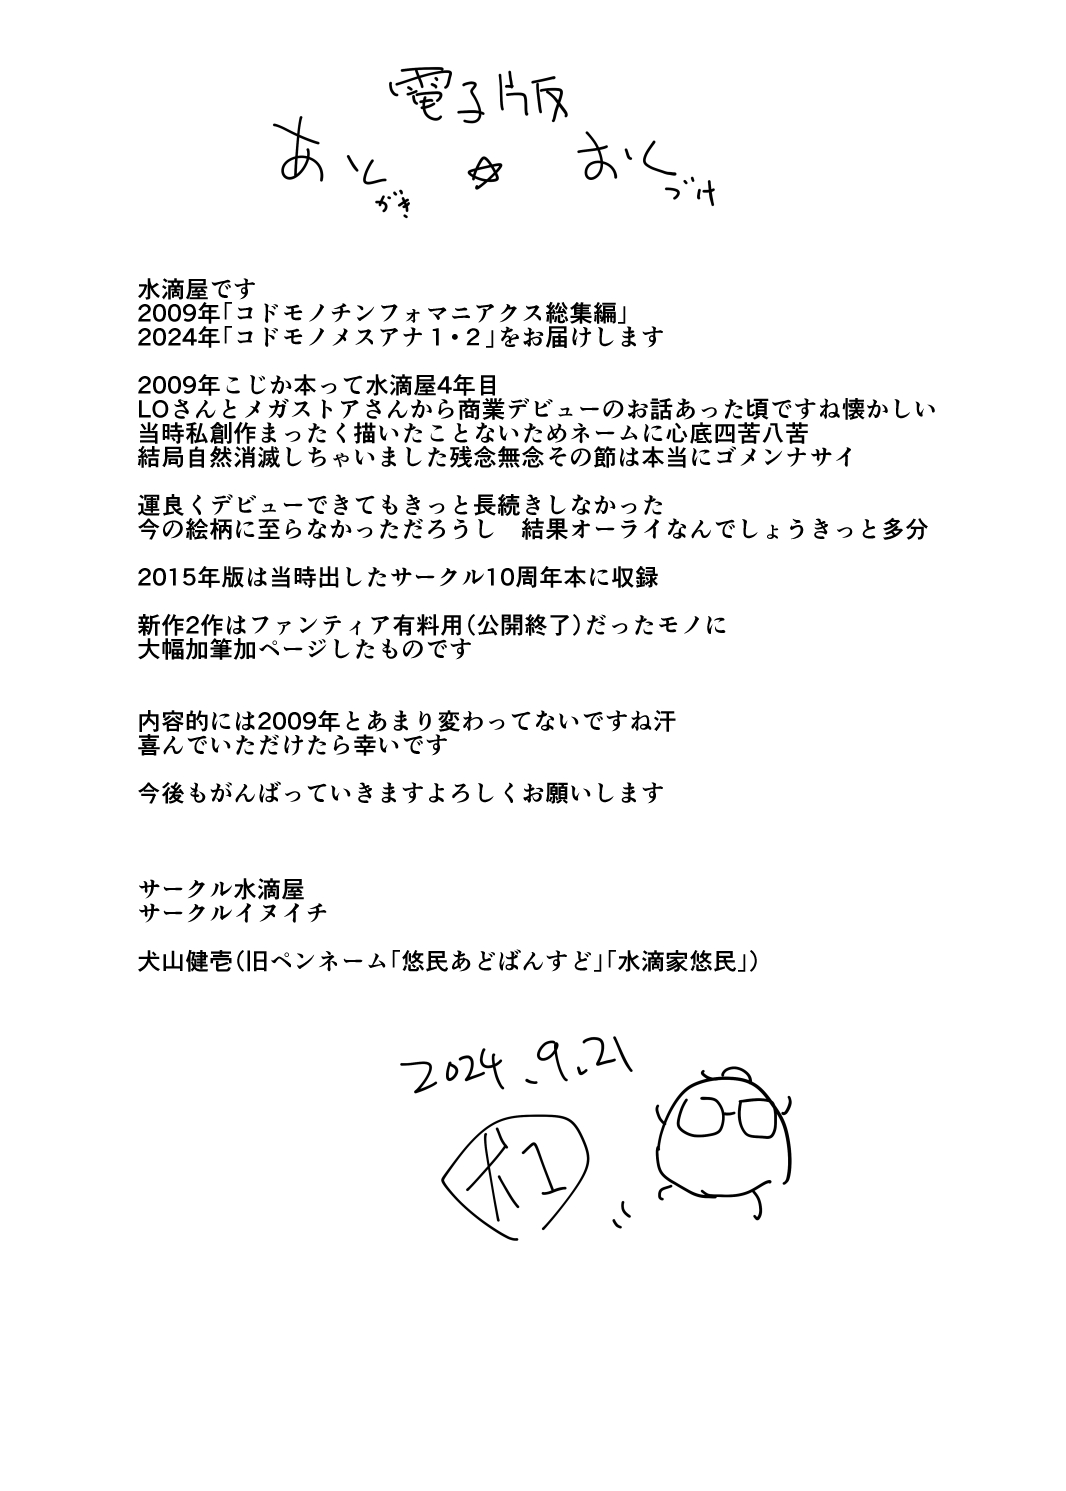 電子版
あとがき☆おくづけ
水滴屋です
2009年「コドモノチンフォマニアクス総集編」
2024年「コドモノメスアナ1・2」をお届けします
2009年こじか本って水滴屋4年目
LOさんとメガストアさんから商業デビューのお話あった頃ですね懐かしい
当時私創作まったく描いたことないためネームに心底四苦八苦
結局自然消滅しちゃいました残念無念その節は本当にゴメンナサイ
運良くデビューできてもきっと長続きしなかった
今の絵柄に至らなかっただろうし　結果オーライなんでしょうきっと多分
2015年版は当時出したサークル10周年本に収録
新作2作はファンティア有料用(公開終了)だったモノに
大幅加筆加ページしたものです
内容的には2009年とあまり変わってないですね汗
喜んでいただけたら幸いです
今後もがんばっていきますよろしくお願いします
サークル水滴屋
サークルイヌイチ
犬山健壱(旧ペンネーム「悠民あどばんすど」「水滴家悠民」)
2024.9.21
犬1